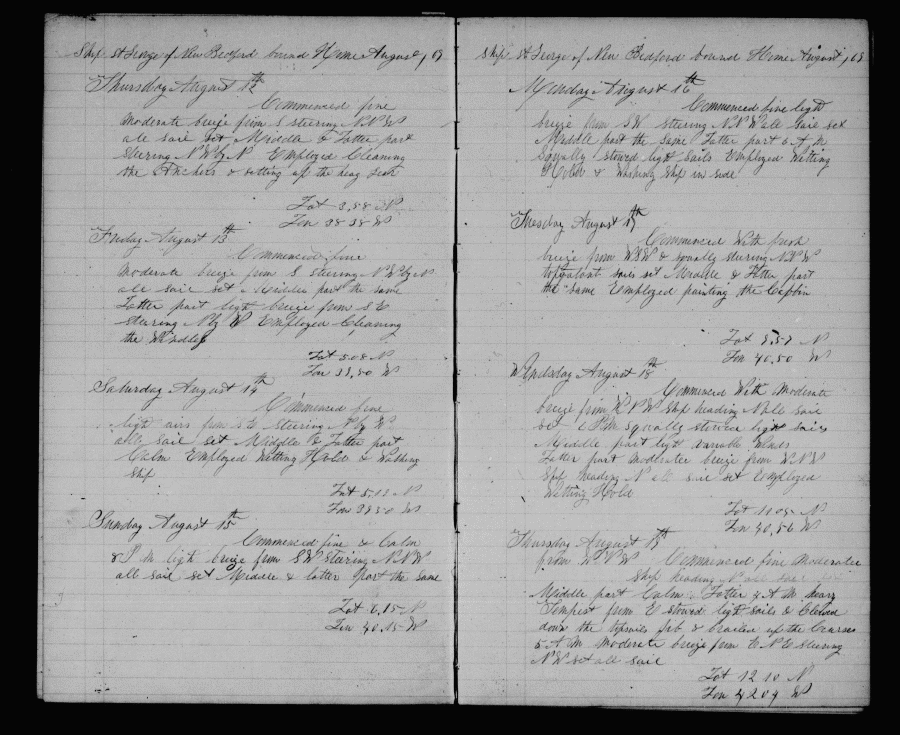 Ship St George of New Bedford bound Home August, 69
Thursday August 12th
Commenced fine
moderate breeze from S steering N N W
all sail set Middle & Latter part
steering N W by N Employed Cleaning
the Anchors & setting up the
Lat 3,58 N
Lon 38 38 W
Friday August 13th
Commenced fine
moderate breeze from S steering N W by N
all sail set Middle part the same
Latter part light breeze from S E
steering N by W Employed Cleaning
the Windlas
Lat 5.08 N
Lon 39,50 W
Saturday August 14th
Commenced fine
light airs from steering N by W
all sail set Middle & Latter part
Calm Employed Wetting Hold & Washing
Ship
Lat 5.19 N
Lon 39 50 W
Sunday August 15th
Commenced fine & Calm
8 P M light breeze from S W steering N N W
all sail set Middle & latter part the same
Lat 6,15 N
Lon 40.15 W
Ship St George of New Bedford bound Home August, 69
Monday August 16th
Commenced fine light
breeze from S W steering N N W all sail set
Middle part the same Latter part 6 A M
squally stowed light sails Employed Wetting
Hold & Washing ship in side
Tuesday August 17th
Commenced With fresh
breeze from W S W & squally steering N N W
topgalant sails set Middle & Latter part
the same Employed painting the Cabbin
Lat 9.57 N
Lon 40.50 W
Wendsday August 18th
Commenced With moderate
breeze from W N W ship heading N all sail
set 6 P M squally stowed light sails
Middle part light variable Winds
Latter part moderate breeze from W N W
Ship heading N all sail set Employed
Wetting Hold
Lat 11.05 N
Lon 40,56 W
Thursday August 19th
Commenced fine moderate
from W N W Ship heading N all sail
Middle part Calm Latter 4 A M heavy
Tempest from E stowed light sails & Clewed
down the topsails jib & brailed up the Courses
5 A M moderate breeze from E N E steering
N W set all sail
Lat 12 10 N
Lon 42 04 W